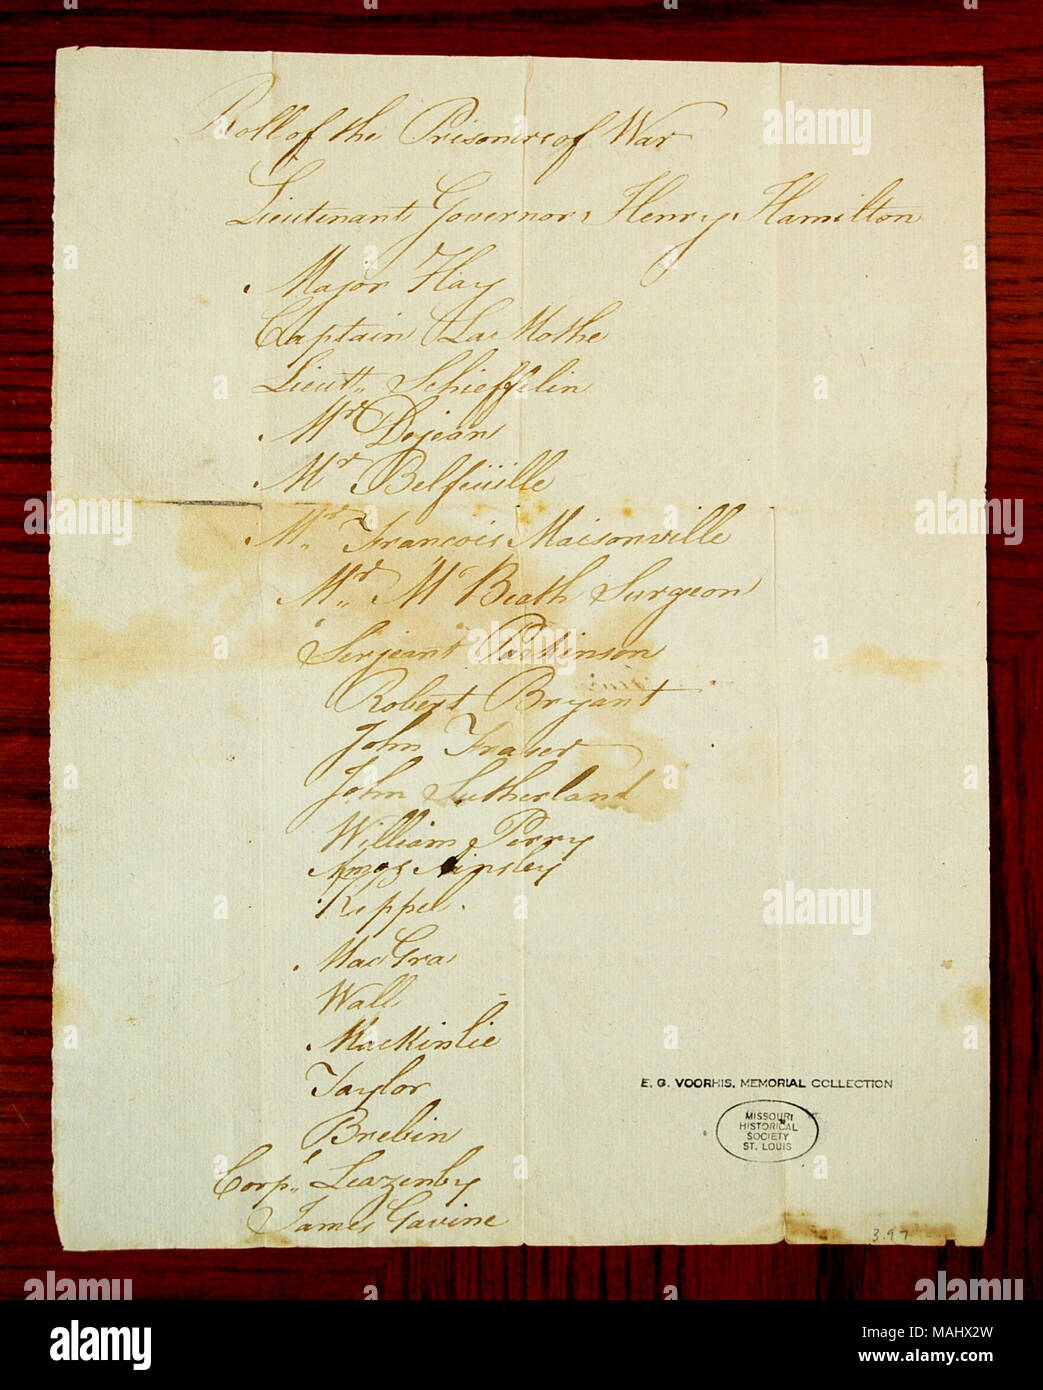 Roll of the Prisoners of War
Lieutenant Governor Henry Hamilton
Major Hay
Captain La Mothe
Lieutt. Schieffelin
Mr Dejean
Mr Belfeüille
Mr. Francois Maisonville
Mr. McBeath Surgeon
Serjeant Parkinson
Robert Bryant
John Fraser
John Sutherland
William Perry
Amos Ainsley
Keppel.
MacGra
Wall
MacKinlie
Taylor
Brebin
Corpl. Leazenby
James Gavine
E. G. VOORHIS, MEMORIAL COLLECTION
MISSOURI
HISTORICAL
SOCIETY
ST. LOUIS
3.97
alamy
Image ID: MAHX2W
www.alamy.com